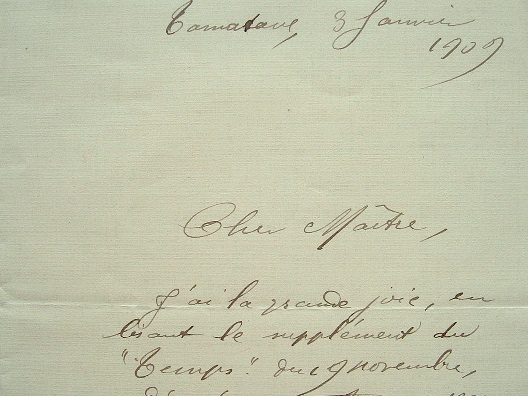 Tamatave, 3 Janvier
1909
Cher Maître,
J'ai la grande joie, en
lisant le supplément du
"Temps" du 19 novembre,